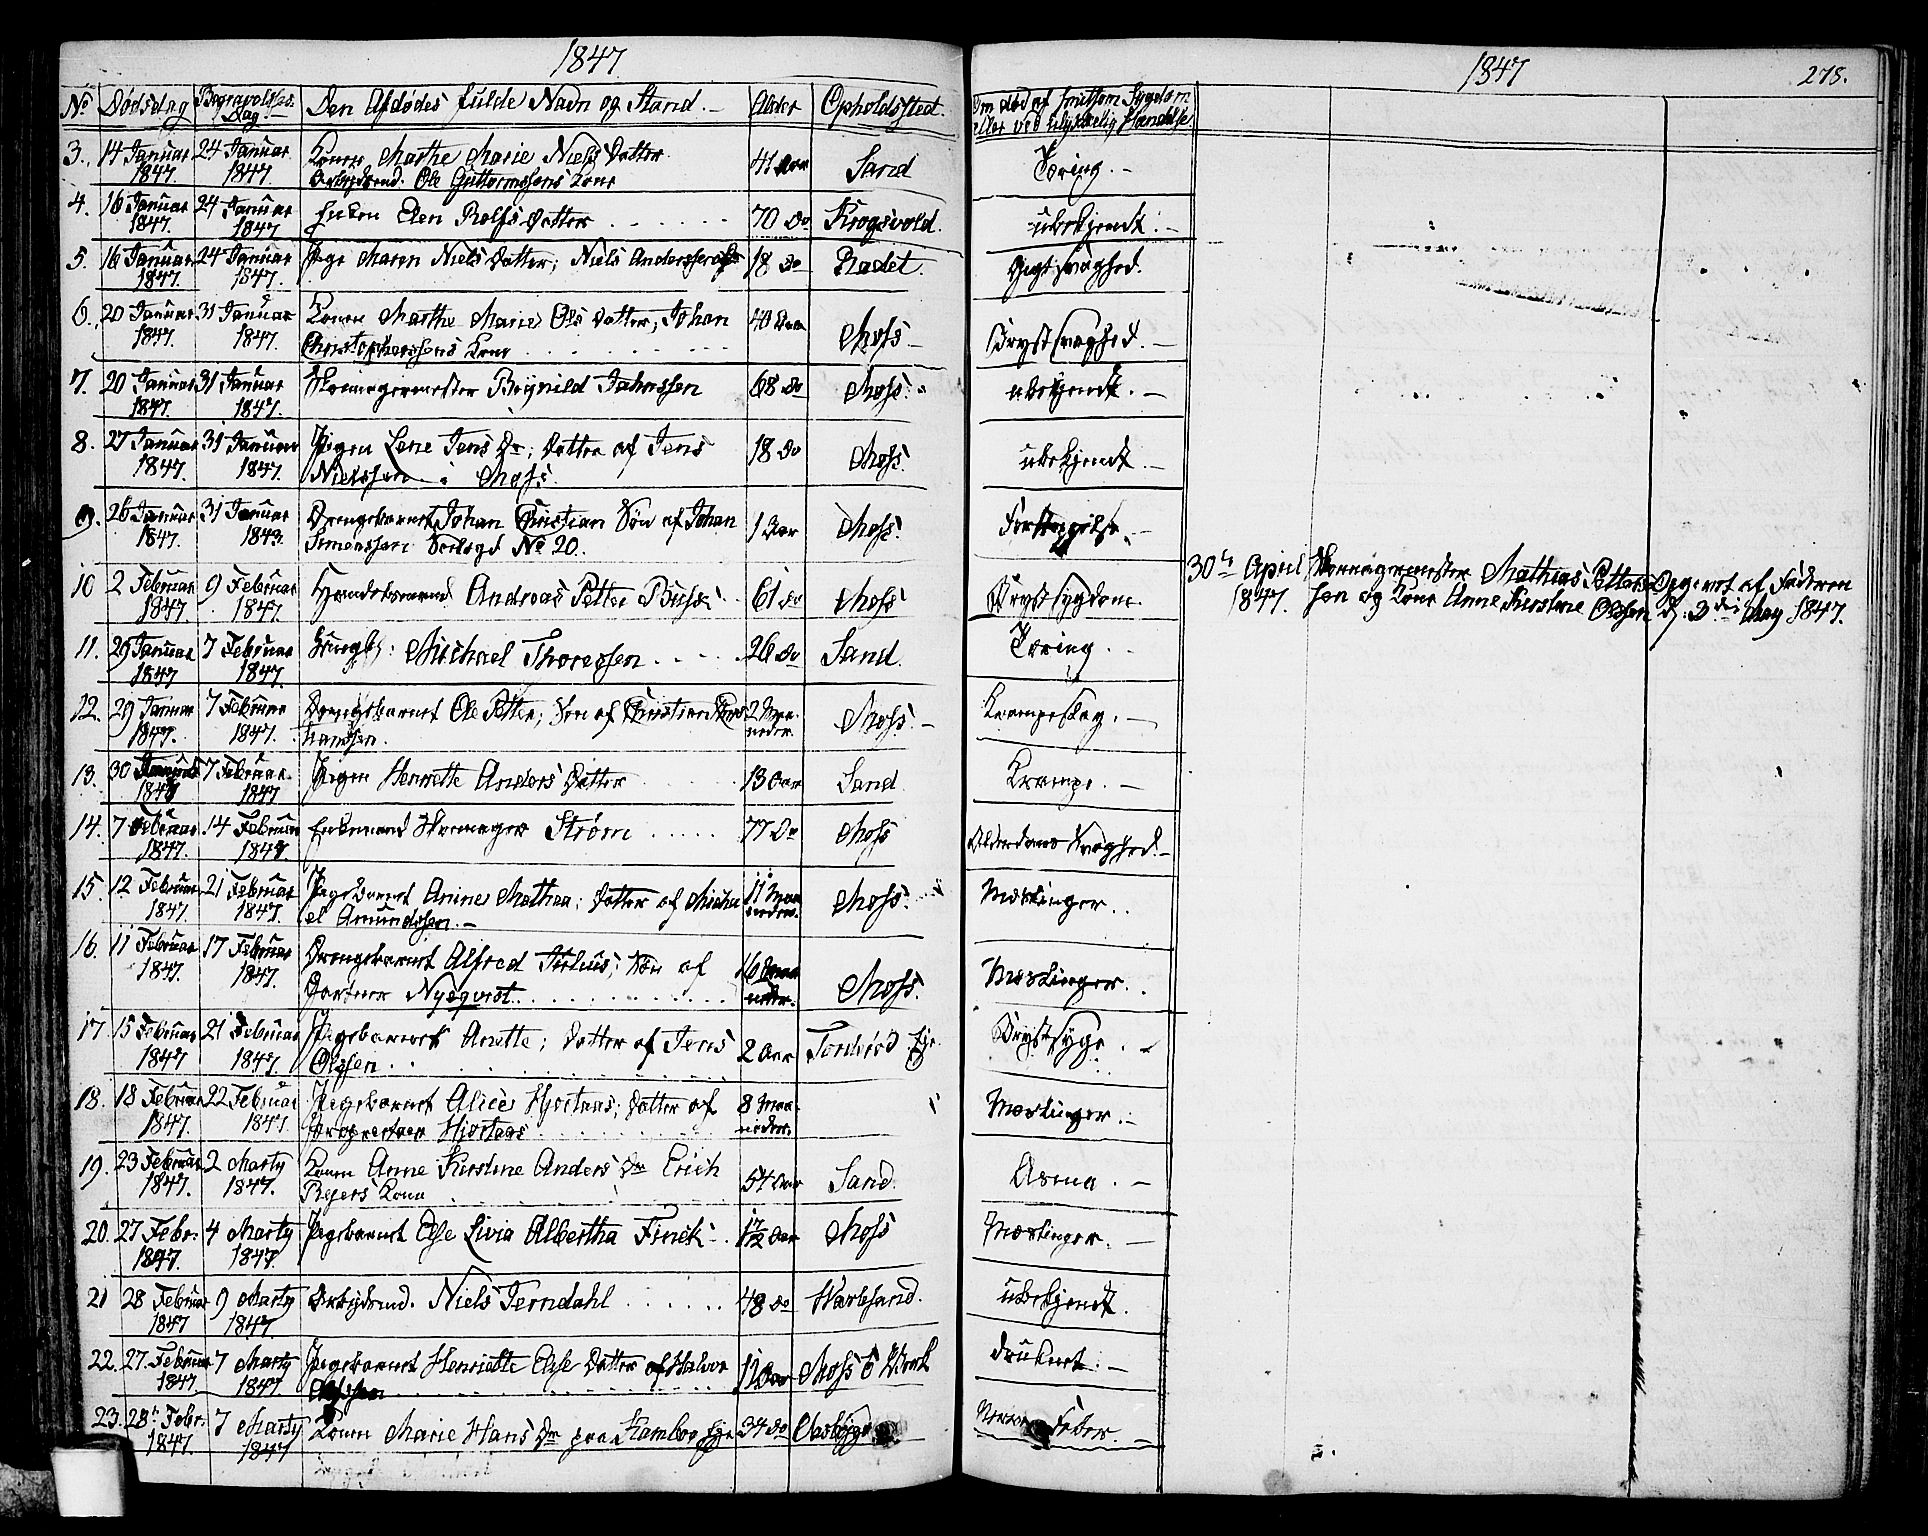 1847
No Dødsdag Begravelses Dag. Den Afdødes fulde Navn og Stand. Alder Opholdssted.
3. 14 Januar 1847. 24 Januar 1847. Konen Marthe Marie Niels Datter
Arbeidsmd. Ole Guttormssens Kone 41 Aar Sand
4. 16 Januar 1847. 24 Januar 1847. Enken Elen Rolfs Datter 70 Do Krogsvold.
5. 16 Januar 1847. 24 Januar 1847. Pige Maren Niels Datter; Niels Anderssens 18 Do Rødet.
6. 20 Januar 1847. 31 Januar 1847. Konen Marthe Marie Ols Datter, Johan
Christopherssens Kone 40 Aar Moss
7. 20 Januar 1847. 31 Januar 1847. Skomagermester Reynild Johnssen 68 Do Moss.
8. 27 Januar 1847. 31 Januar 1847. Pigen Lene Jens Dr; Datter af Jens
Nielssen i Moss. 18 Do Moss.
9. 26 Januar 1847. 31 Januar 1843. Drengebarnet Johan Christian Søn af Johan
Simenssen No 20. 1 Aar Moss.
10 2 Februar 1847. 9 Februar 1847. Handelsmand Andreas Petter Buss 61 Do Moss
11. 29 Januar 1847 7 Februar 1847. Ungk: Michael Thoressen 26 Do Sand.
12. 29 Januar 1847. 7 Februar 1847. Drengebarnet Ole Petter; Søn af Christian
hanssen. 2 Maaneder Moss.
13. 30 Januar 1847 7 Februar 1847 Pigen Henriette Anders Datter 13 Aar Sand
14. 7 Februar 1847. 14 Februar 1847. Enkemand Skomager Strøm 77 Do Moss
15. 12 Februar 1847. 21 Februar 1847. Pigebarnet Anine Mathea; Datter af Micha
el Amundssen. 11 Maaneder. Moss.
16. 11 Februar 1847. 17 Februar 1847. Drengebarnet Alfred Julius; Søn af
Gartner Nyeqvist. 16 Maaneder. Moss.
17. 15 Februar 1847 21 Februar 1847. Pigebarnet Anette; Datter af Jens
Olssen 2 Aar Tronerød Eje
18. 18 Februar 1847. 22 Februar 1847 Pigebarnet Alice Hjortaas; Datter af
Proprietær Hjortaas 8 Maaneder.
19. 23 Februar 1847. 2 Marty 1847. Konen Anne Kirstine Anders Dr Erich
Rejers Kone 54 Aar Sand
20. 27 Febr. 1847. 4 Marty 1847. Pigebarnet Else Livia Albertha Finck 1 7/12 Aar Moss
21 28 Februar 1847 9 Marty 1847. Arbeidsmd. Niels Jerndahl 48 Do Warlesand.
22. 27. Februar 1847 7 Marty 1847. Pigebarnet Henriette Else Datter af Halvor
Olssen 12 Aar Moss Værk
23. 28 Febr. 1847. 7 Marty 1847 Konen Marie Hans Dr paa Kambo Eje 34 Do
1847 278.
Om død af smitsom Sygdom
eller ved ulykkelig Hændelse.
Tæring.
ubekjendt.
Gigtsvaghed.
Brystsvaghed.
ubekjendt.
ubekjendt.
Forstoppelse.
Brystsygdom.
Tæring.
Krampeslag.
Krampe.
Alderdoms Svaghed.
Mæslinger.
Mæslinger.
Brystsyge.
Mæslinger.
Asma.
Mæslinger.
ubekjendt.
druknet.
Nerve Feber.
30te April 1847. Skomagermester Mathias Petters
sen og Kone Anne Kirstine Olssen
Opgivet af Faderen
d. 3die May 1847.